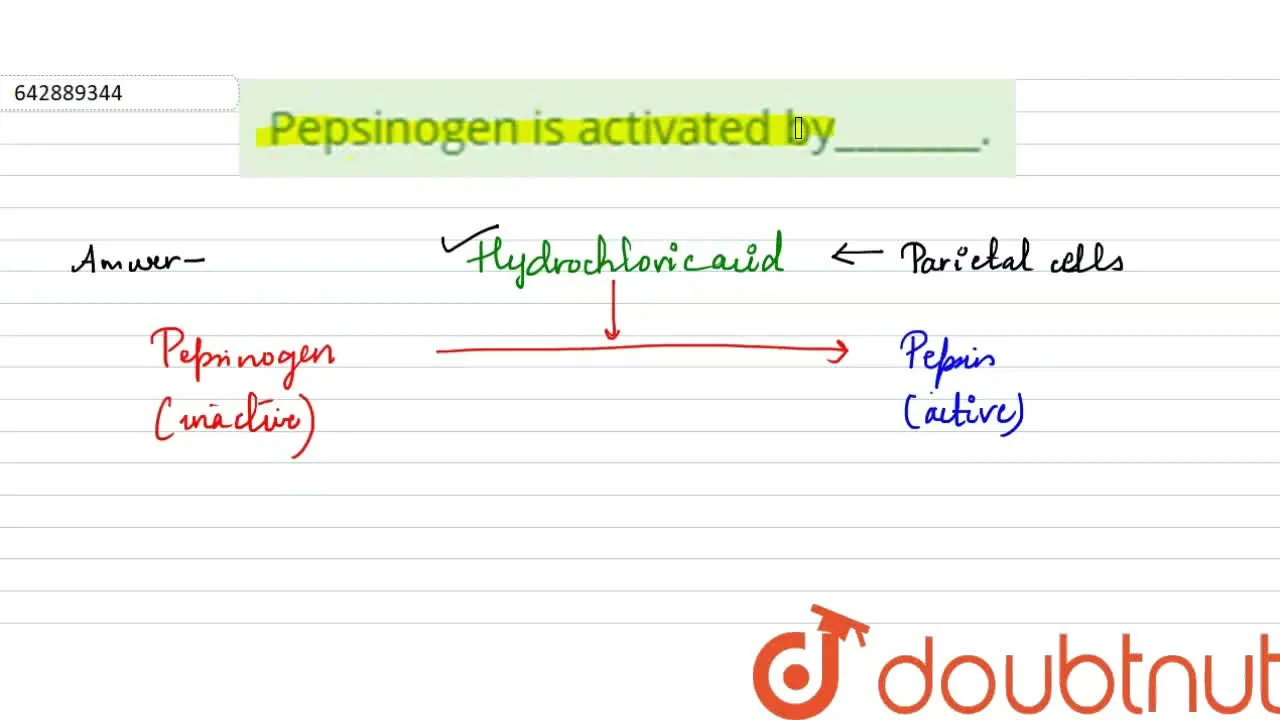 642889344
Pepsinogen is activated by_______.
Answer- ✓Hydrochloric acid ← Parietal cells
Pepsinogen → Pepsin
(inactive) (active)
doubtnut